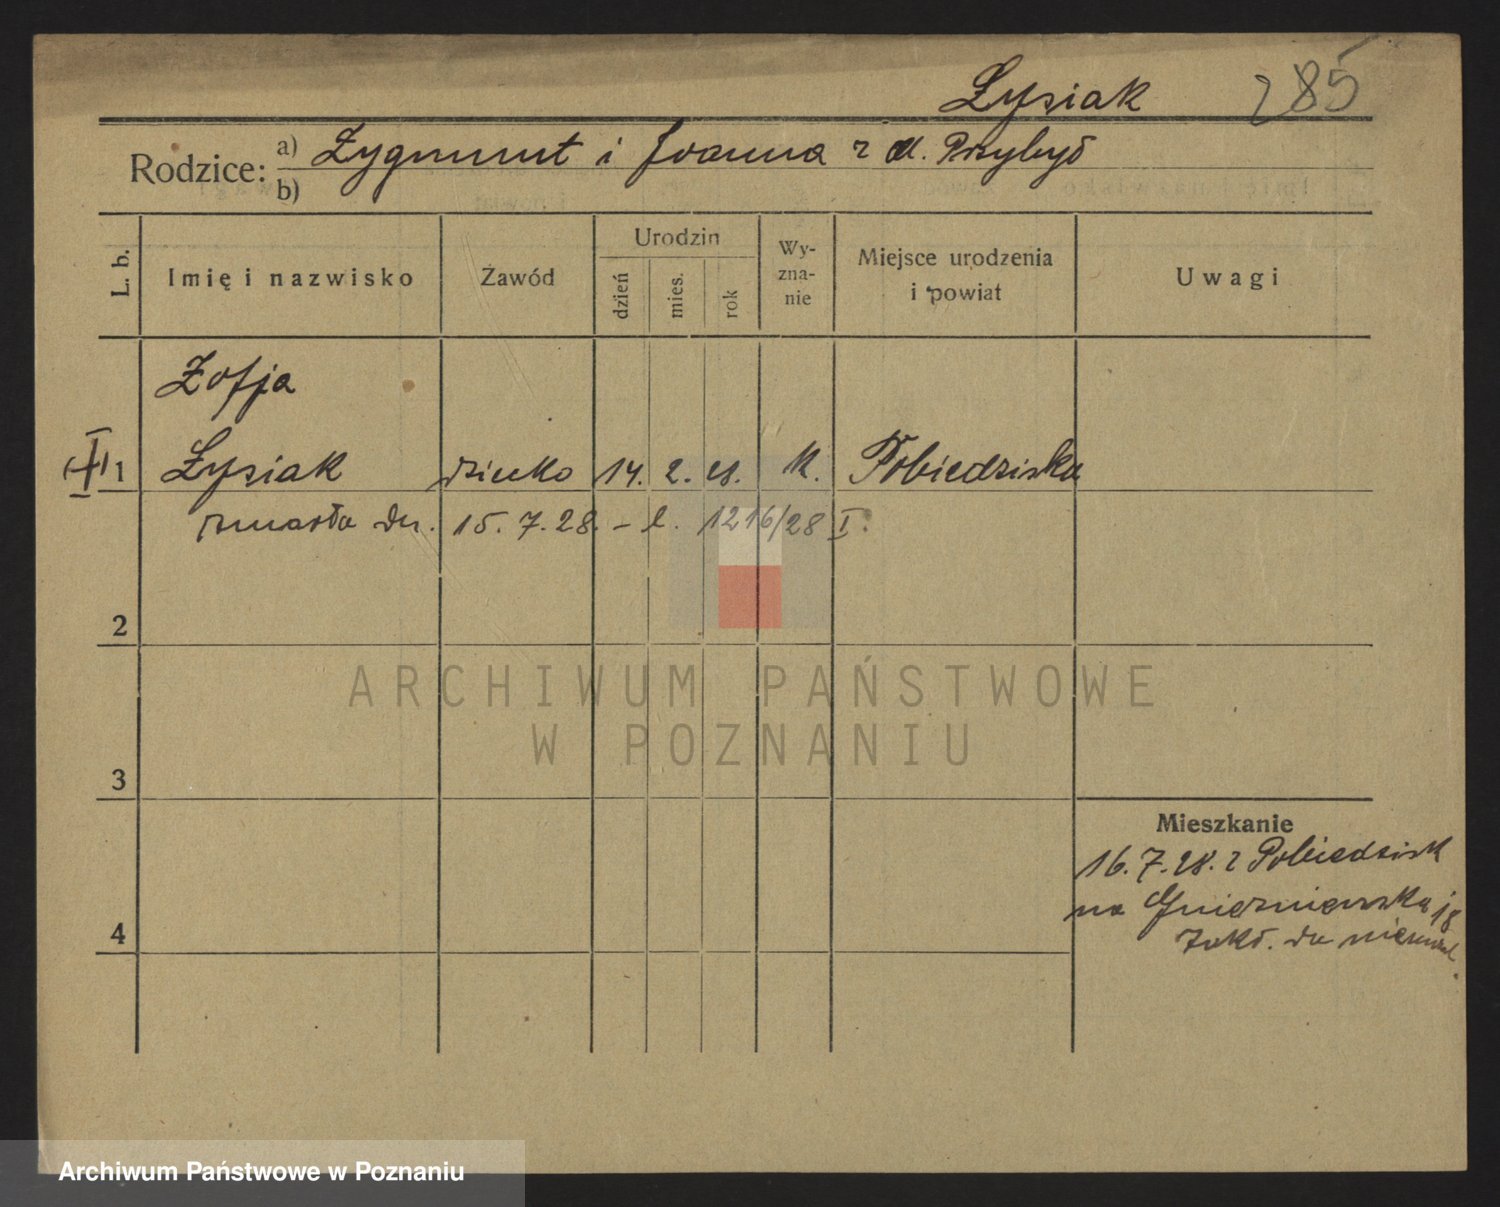 Łysiak 285
Rodzice: a) Zygmunt i Joanna z d. Przybył
b)
L. b. Imię i nazwisko Zawód Urodzin dzień mies. rok Wyznanie Miejsce urodzenia i powiat Uwagi
Zofja
1 Łysiak dziecko 14. 2. 28. K. Pobiedziska
zmarła dn. 15. 7. 28. – l. 1216/28 I.
2
ARCHIWUM PAŃSTWOWE
W POZNANIU
3
Mieszkanie
16. 7. 28. z Pobiedzisk
na Gnieźnieńską 18
4
Zakł. dla niemowl.
Archiwum Państwowe w Poznaniu